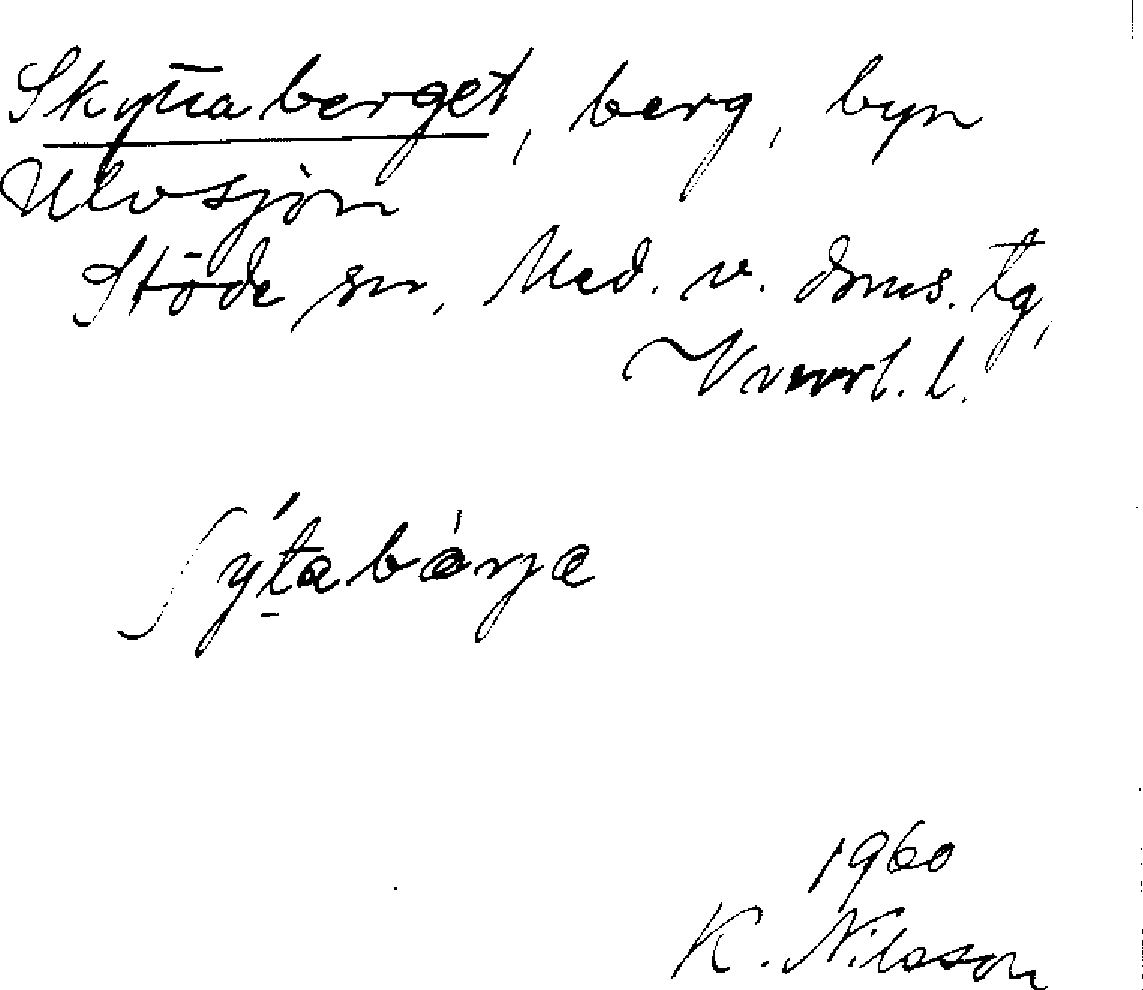 Skyttaberget, berg, byn
Ulvsjön
Stöde sn, Med. v. dms. tg,
Vnorrl. l.
ʃýtabárja
1960
K. Nilsson